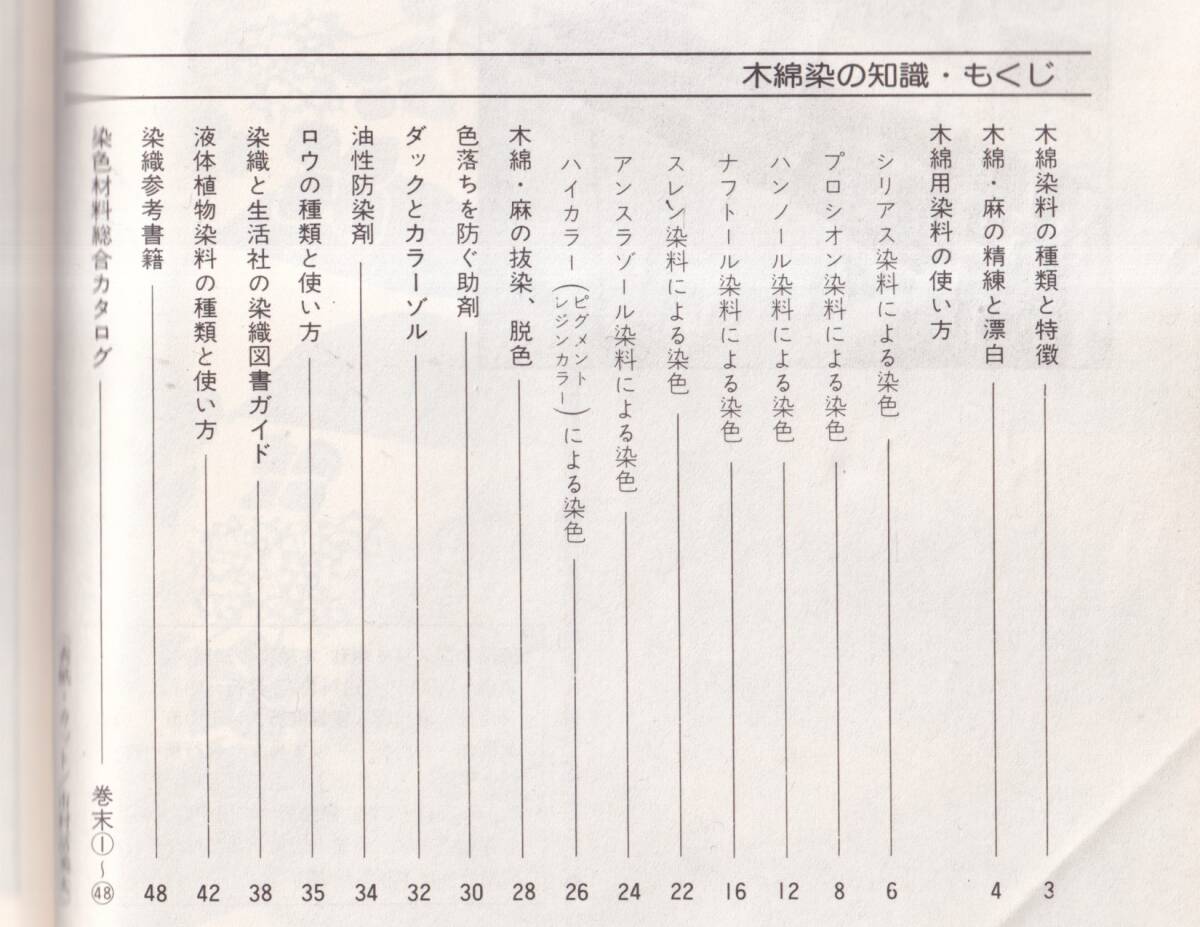 木綿染の知識・もくじ
木綿染料の種類と特徴 3
木綿・麻の精練と漂白 4
木綿用染料の使い方
シリアス染料による染色 6
プロシオン染料による染色 8
ハンノール染料による染色 12
ナフトール染料による染色 16
スレン染料による染色 22
アンスラゾール染料による染色 24
ハイカラー(ピグメントレジンカラー)による染色 26
木綿・麻の抜染、脱色 28
色落ちを防ぐ助剤 30
ダックとカラーゾル 32
油性防染剤 34
ロウの種類と使い方 35
染織と生活社の染織図書ガイド 38
液体植物染料の種類と使い方 42
染織参考書籍 48
染色材料総合カタログ 巻末①~㊽